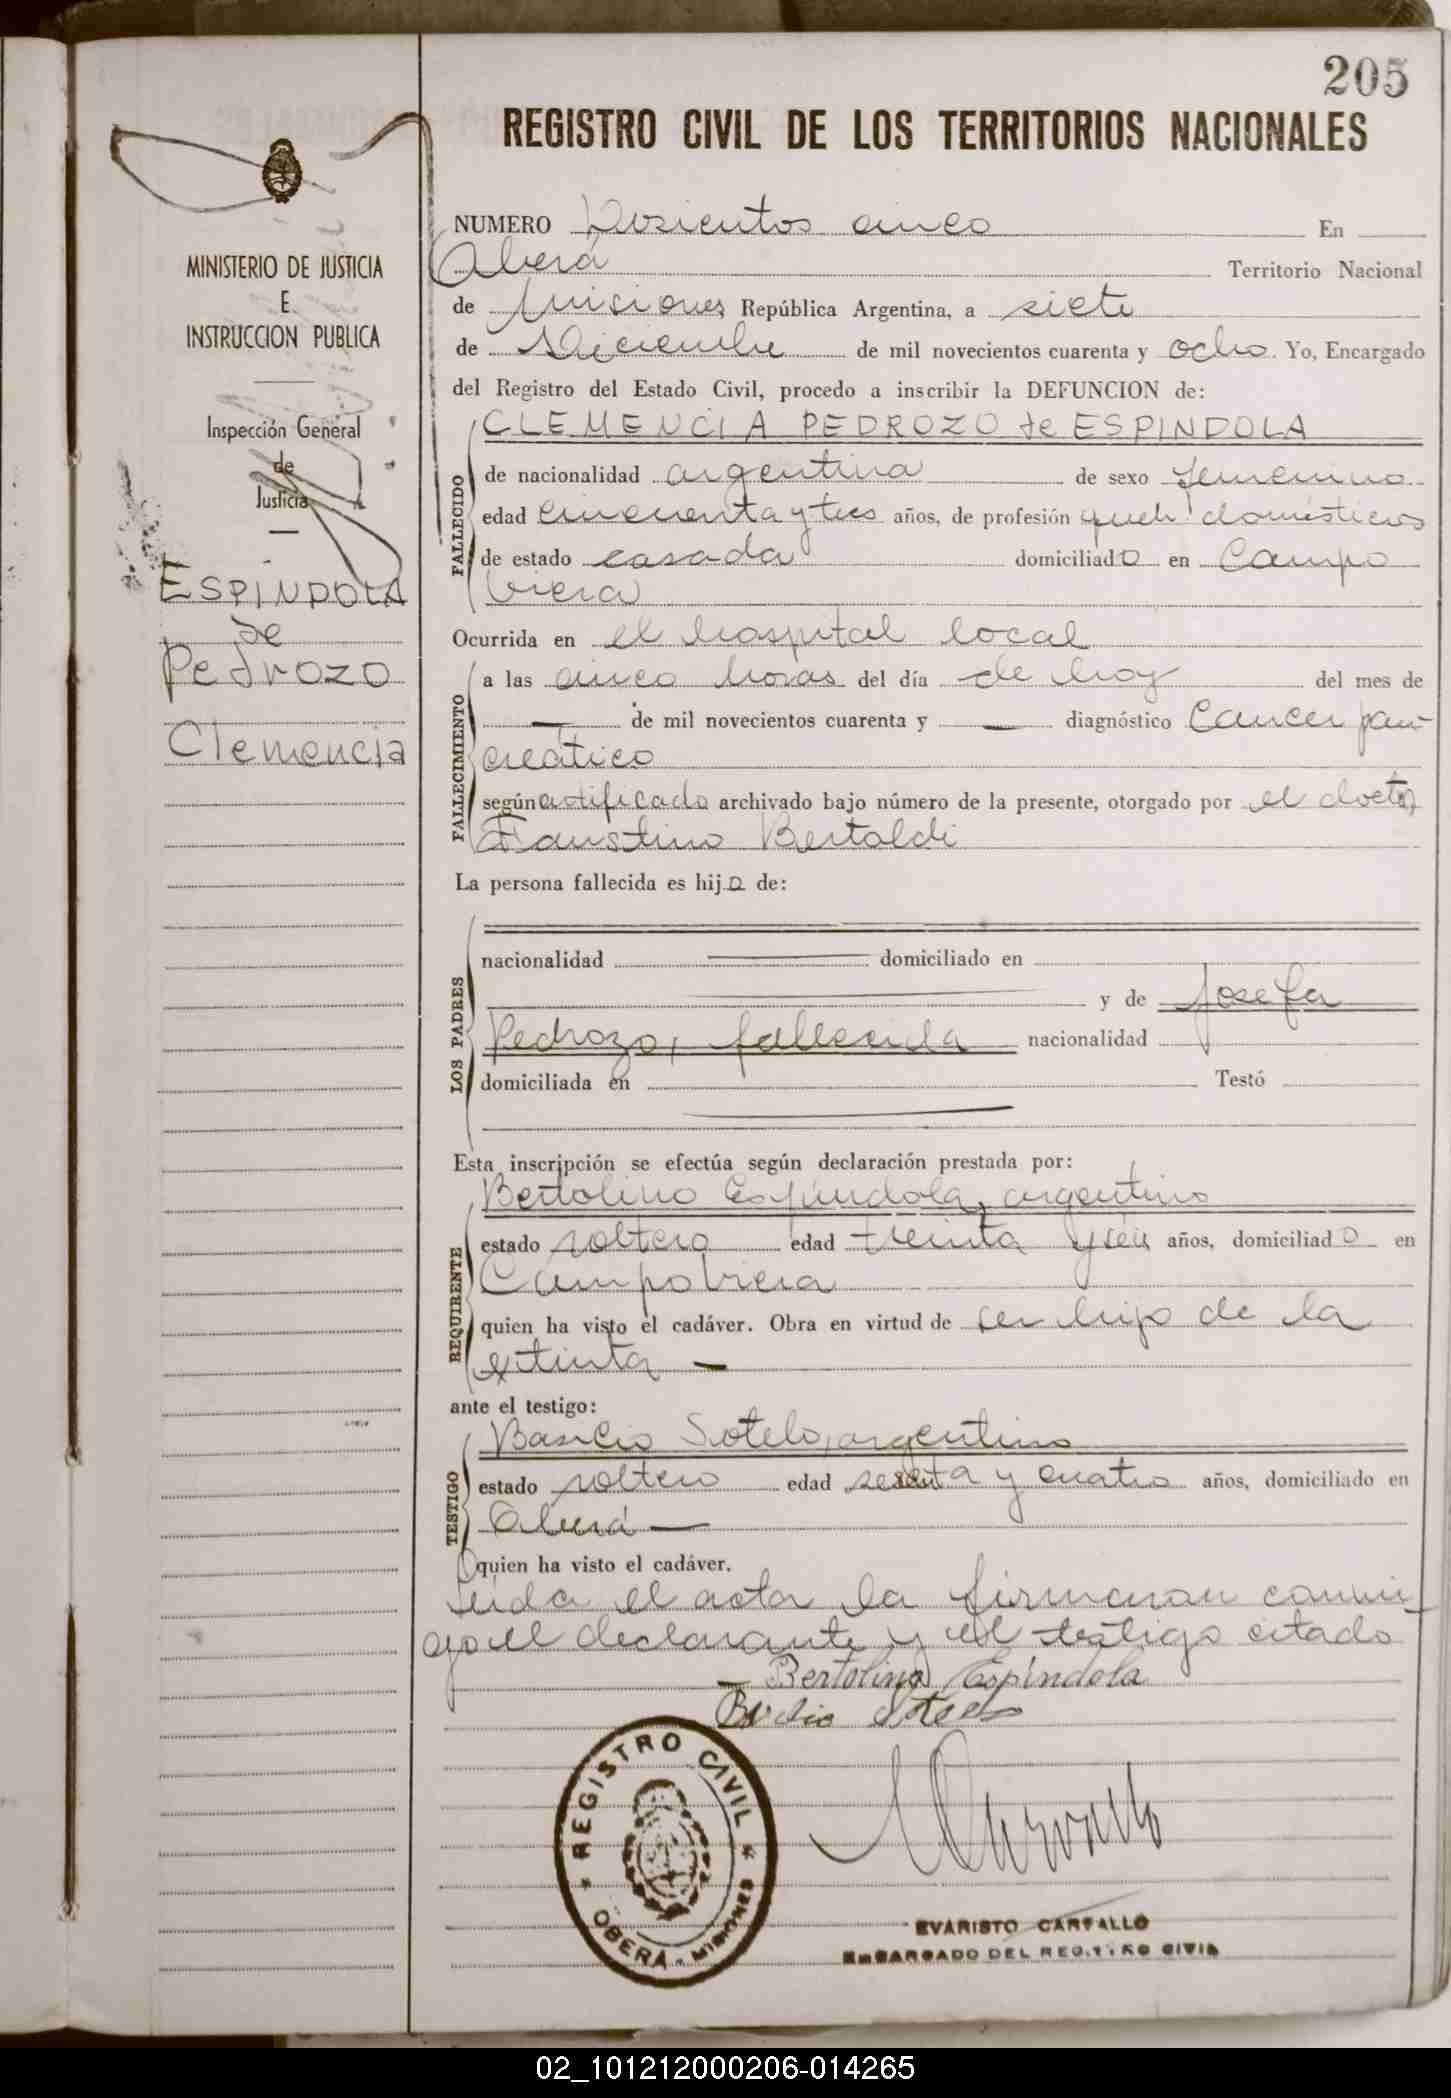 205
REGISTRO CIVIL DE LOS TERRITORIOS NACIONALES
MINISTERIO DE JUSTICIA
E
INSTRUCCION PUBLICA
Inspección General
de
Justicia
ESPÍNDOLA
de
Pedrozo
Clemencia
NUMERO Dosientos cinco En
Oberá Territorio Nacional
de Misiones República Argentina, a siete
de Diciembre de mil novecientos cuarenta y ocho. Yo, Encargado
del Registro del Estado Civil, procedo a inscribir la DEFUNCION de:
CLEMENCIA PEDROZO de ESPINDOLA
FALLECIDO
de nacionalidad argentina de sexo femenino
edad cincuenta y tres años, de profesión queh domésticos
de estado casada domiciliado a en Campo
Viera
Ocurrida en el hospital local
FALLECIMIENTO
a las cinco horas del día de hoy del mes de
— de mil novecientos cuarenta y — diagnóstico Cancer pan-
creático
según certificado archivado bajo número de la presente, otorgado por el doctor
Faustino Bertoldi
La persona fallecida es hija de:
LOS PADRES
nacionalidad domiciliado en
y de Josefa
Pedrozo, fallecida nacionalidad
domiciliada en Testó
Esta inscripción se efectúa según declaración prestada por:
REQUIRENTE
Bertolino Espíndola, argentino
estado soltero edad treinta y seis años, domiciliado en
Campo Viera
quien ha visto el cadáver. Obra en virtud de ser hijo de la
extinta —
ante el testigo:
TESTIGO
Basilio Sotelo, argentino
estado soltero edad sesenta y cuatro años, domiciliado en
Oberá —
quien ha visto el cadáver.
Leida el acta la firmaron conmi-
go el declarante y el testigo citado
— Bertolino Espíndola
Basilio Sotelo
REGISTRO CIVIL
OBERÁ - MISIONES
EVARISTO CARVALLO
ENCARGADO DEL REGISTRO CIVIL
02_101212000206-014265